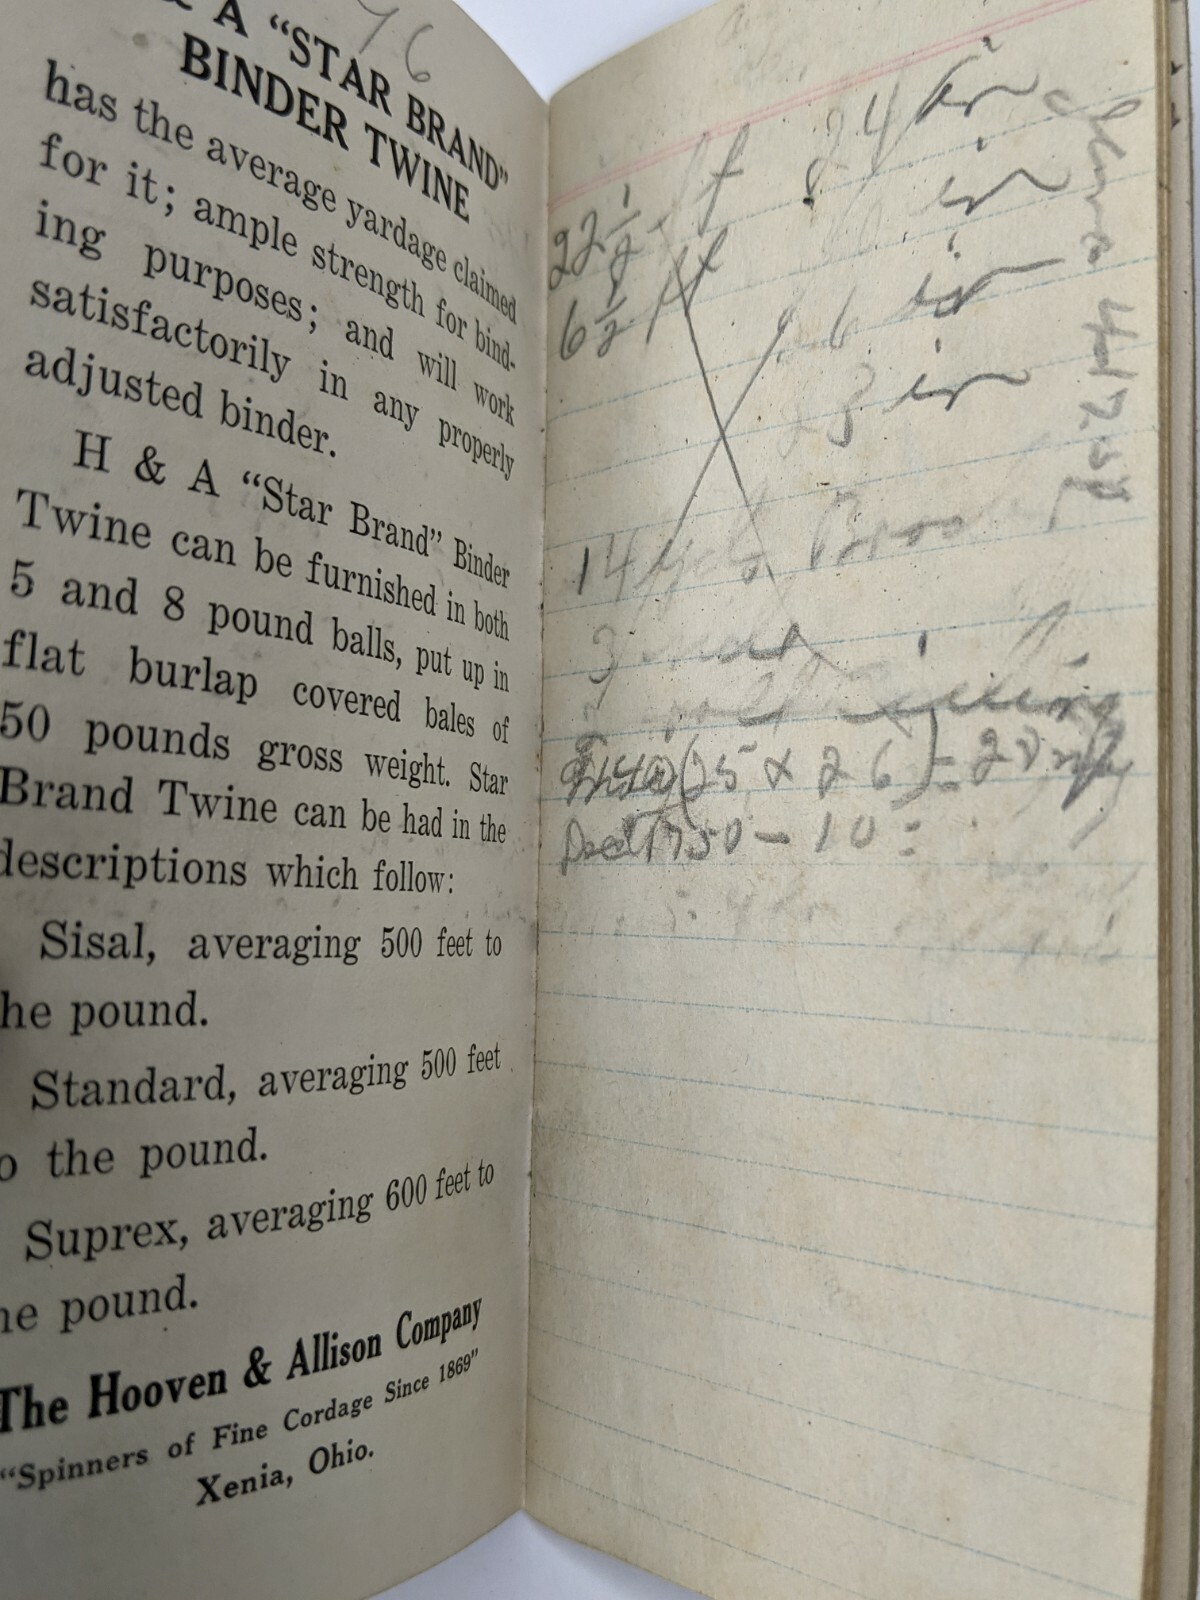 76
& A “STAR BRAND”
BINDER TWINE
has the average yardage claimed
for it; ample strength for bind-
ing purposes; and will work
satisfactorily in any properly
adjusted binder.
H & A “Star Brand” Binder
Twine can be furnished in both
5 and 8 pound balls, put up in
flat burlap covered bales of
50 pounds gross weight. Star
Brand Twine can be had in the
descriptions which follow:
Sisal, averaging 500 feet to
he pound.
Standard, averaging 500 feet
o the pound.
Suprex, averaging 600 feet to
he pound.
The Hooven & Allison Company
“Spinners of Fine Cordage Since 1869”
Xenia, Ohio.
24 in
22 1/2 ft in
6 1/2 ft 6 in
23 in
14 yds
3
(25 x 26) = 28
1750 - 10 =